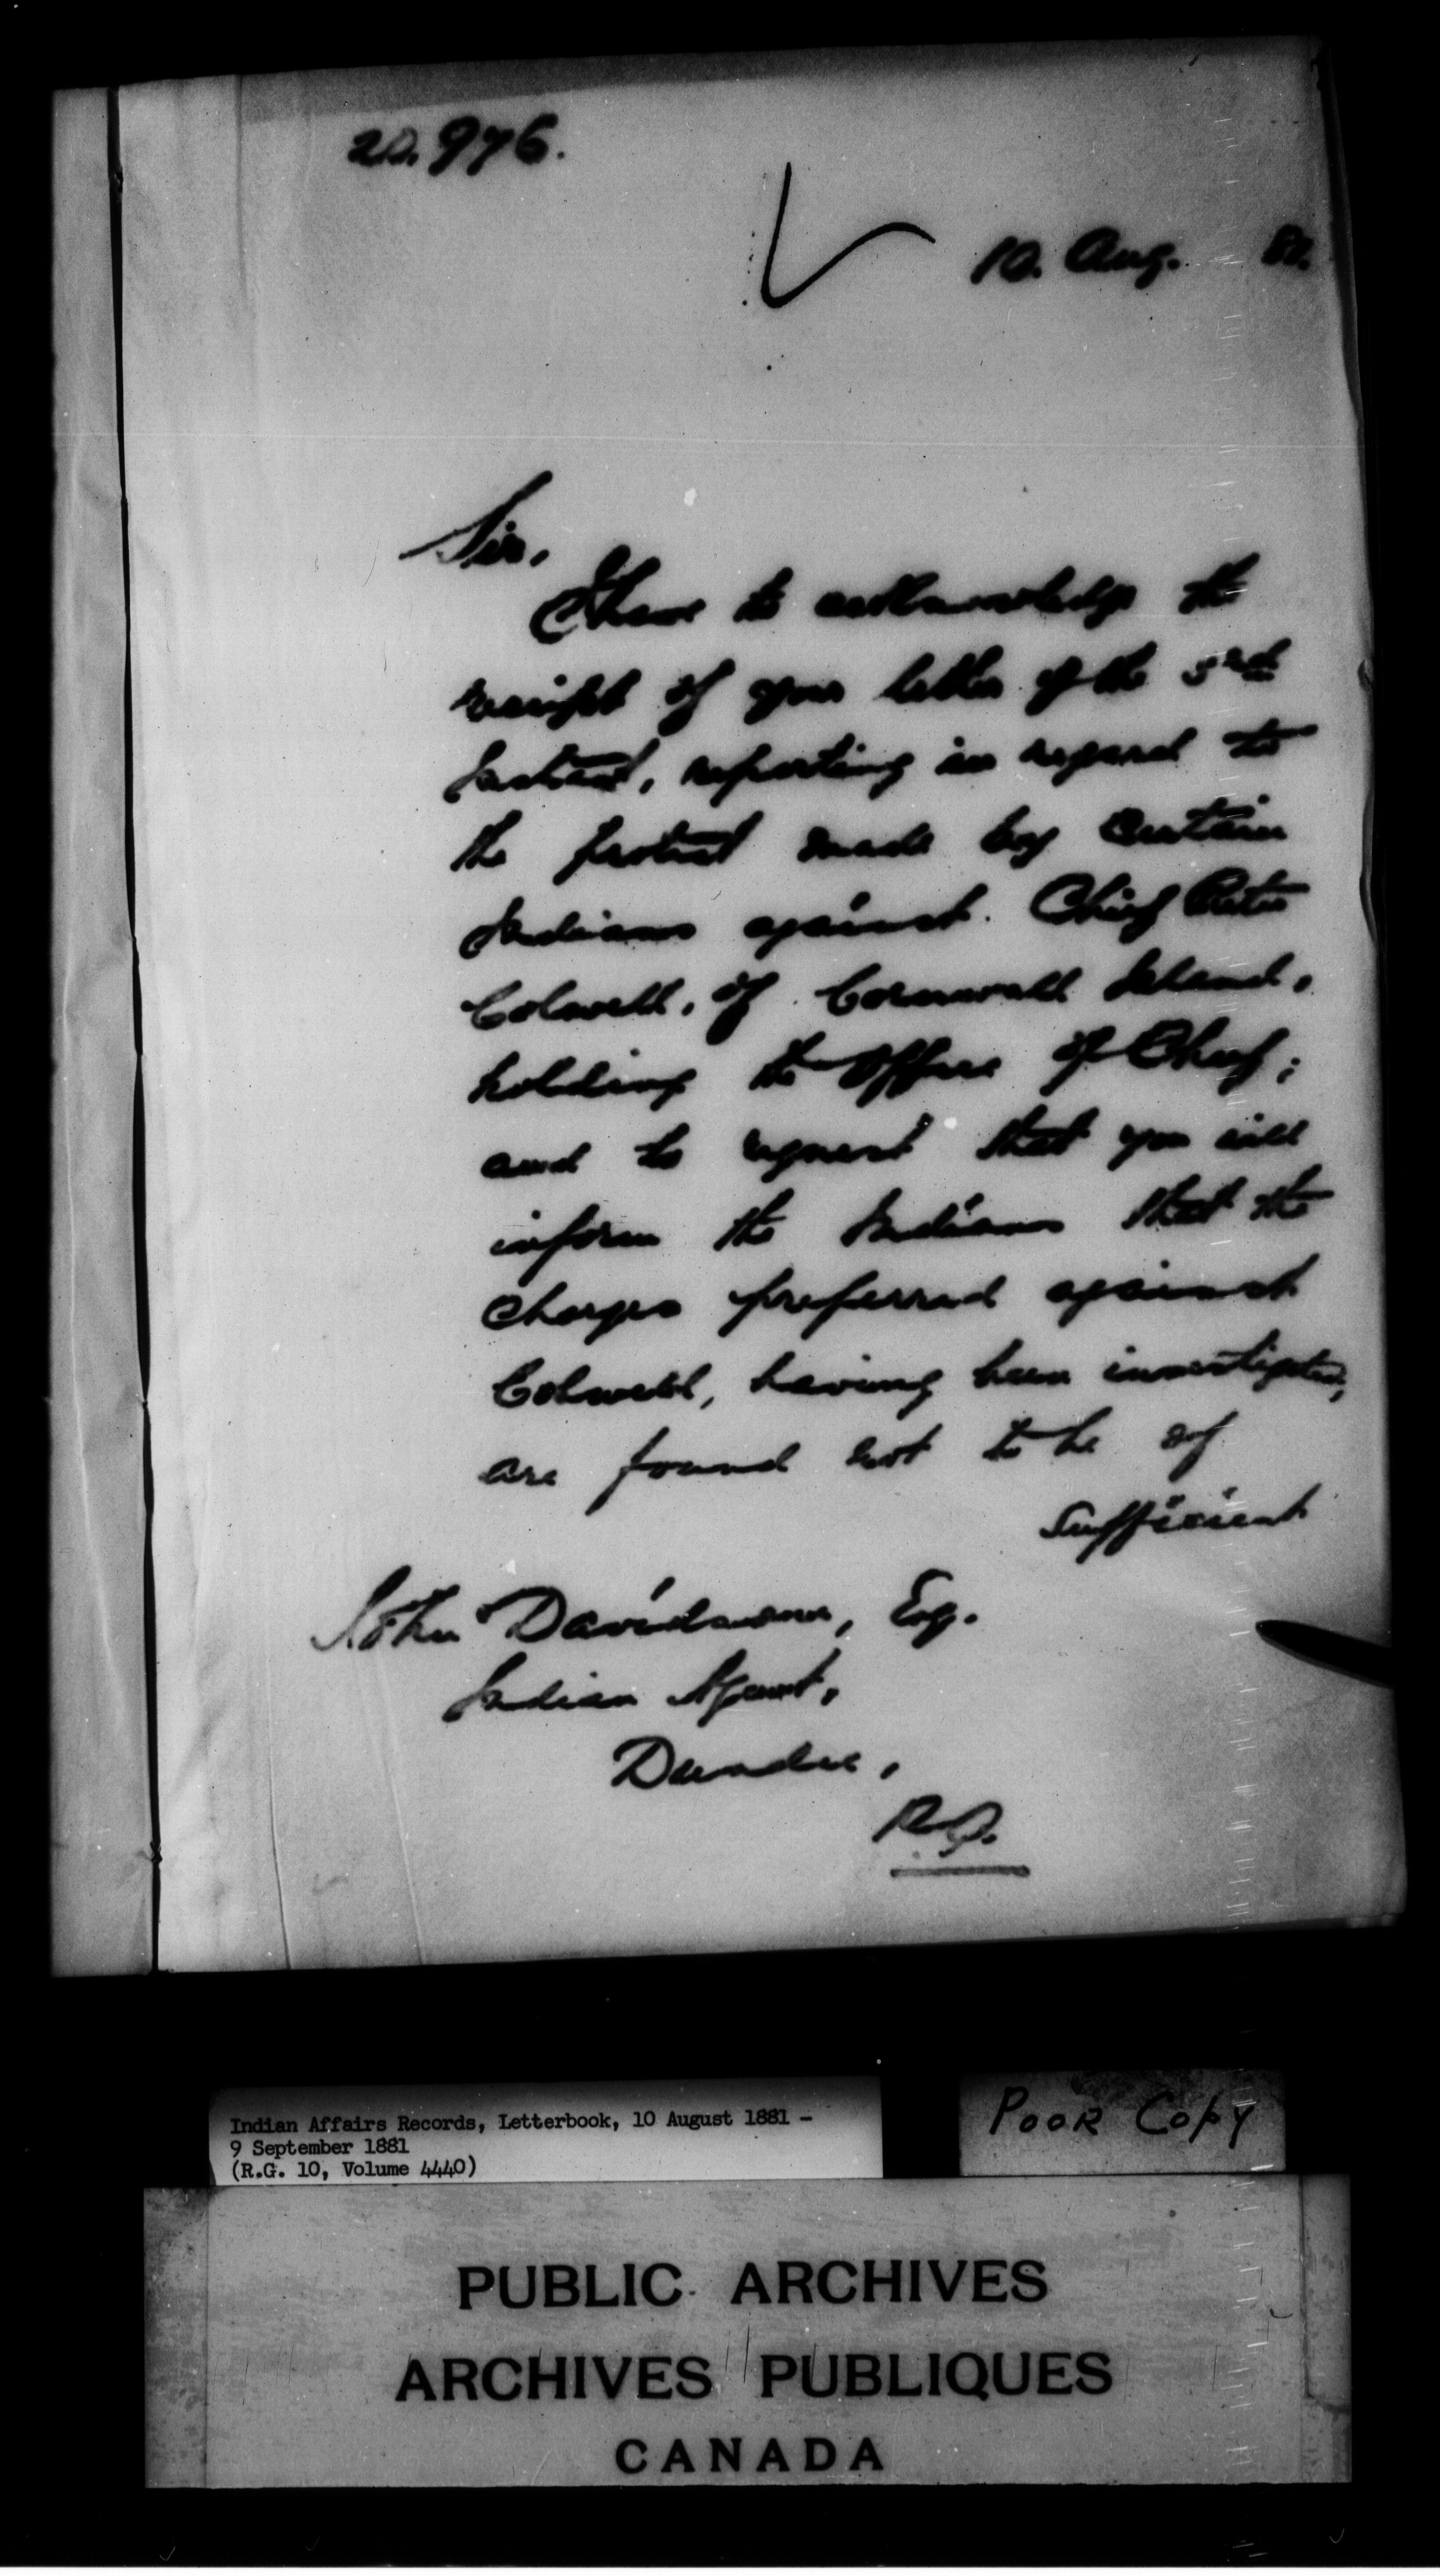 20.976.
10. Aug. 81.
Sir,
I have to acknowledge the
receipt of your letter of the 3rd
Instant, reporting in regard to
the protest made by Certain
Indians against Chief Peter
Colwell, of Cornwall Island,
holding the Office of Chief;
and to request that you will
inform the Indians that the
Charges preferred against
Colwell, having been investigated,
are found not to be of
sufficient
John Davidson, Esq.
Indian Agent,
Dundee,
P.Q.
Indian Affairs Records, Letterbook, 10 August 1881 -
9 September 1881
(R.G. 10, Volume 4440)
POOR COPY
PUBLIC ARCHIVES
ARCHIVES PUBLIQUES
CANADA